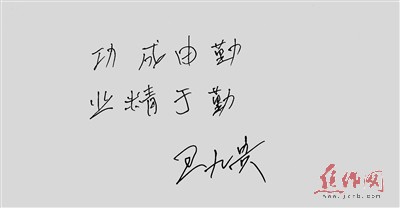 功成由勤
业精于勤
王九贵
焦作网
www.jzrb.com